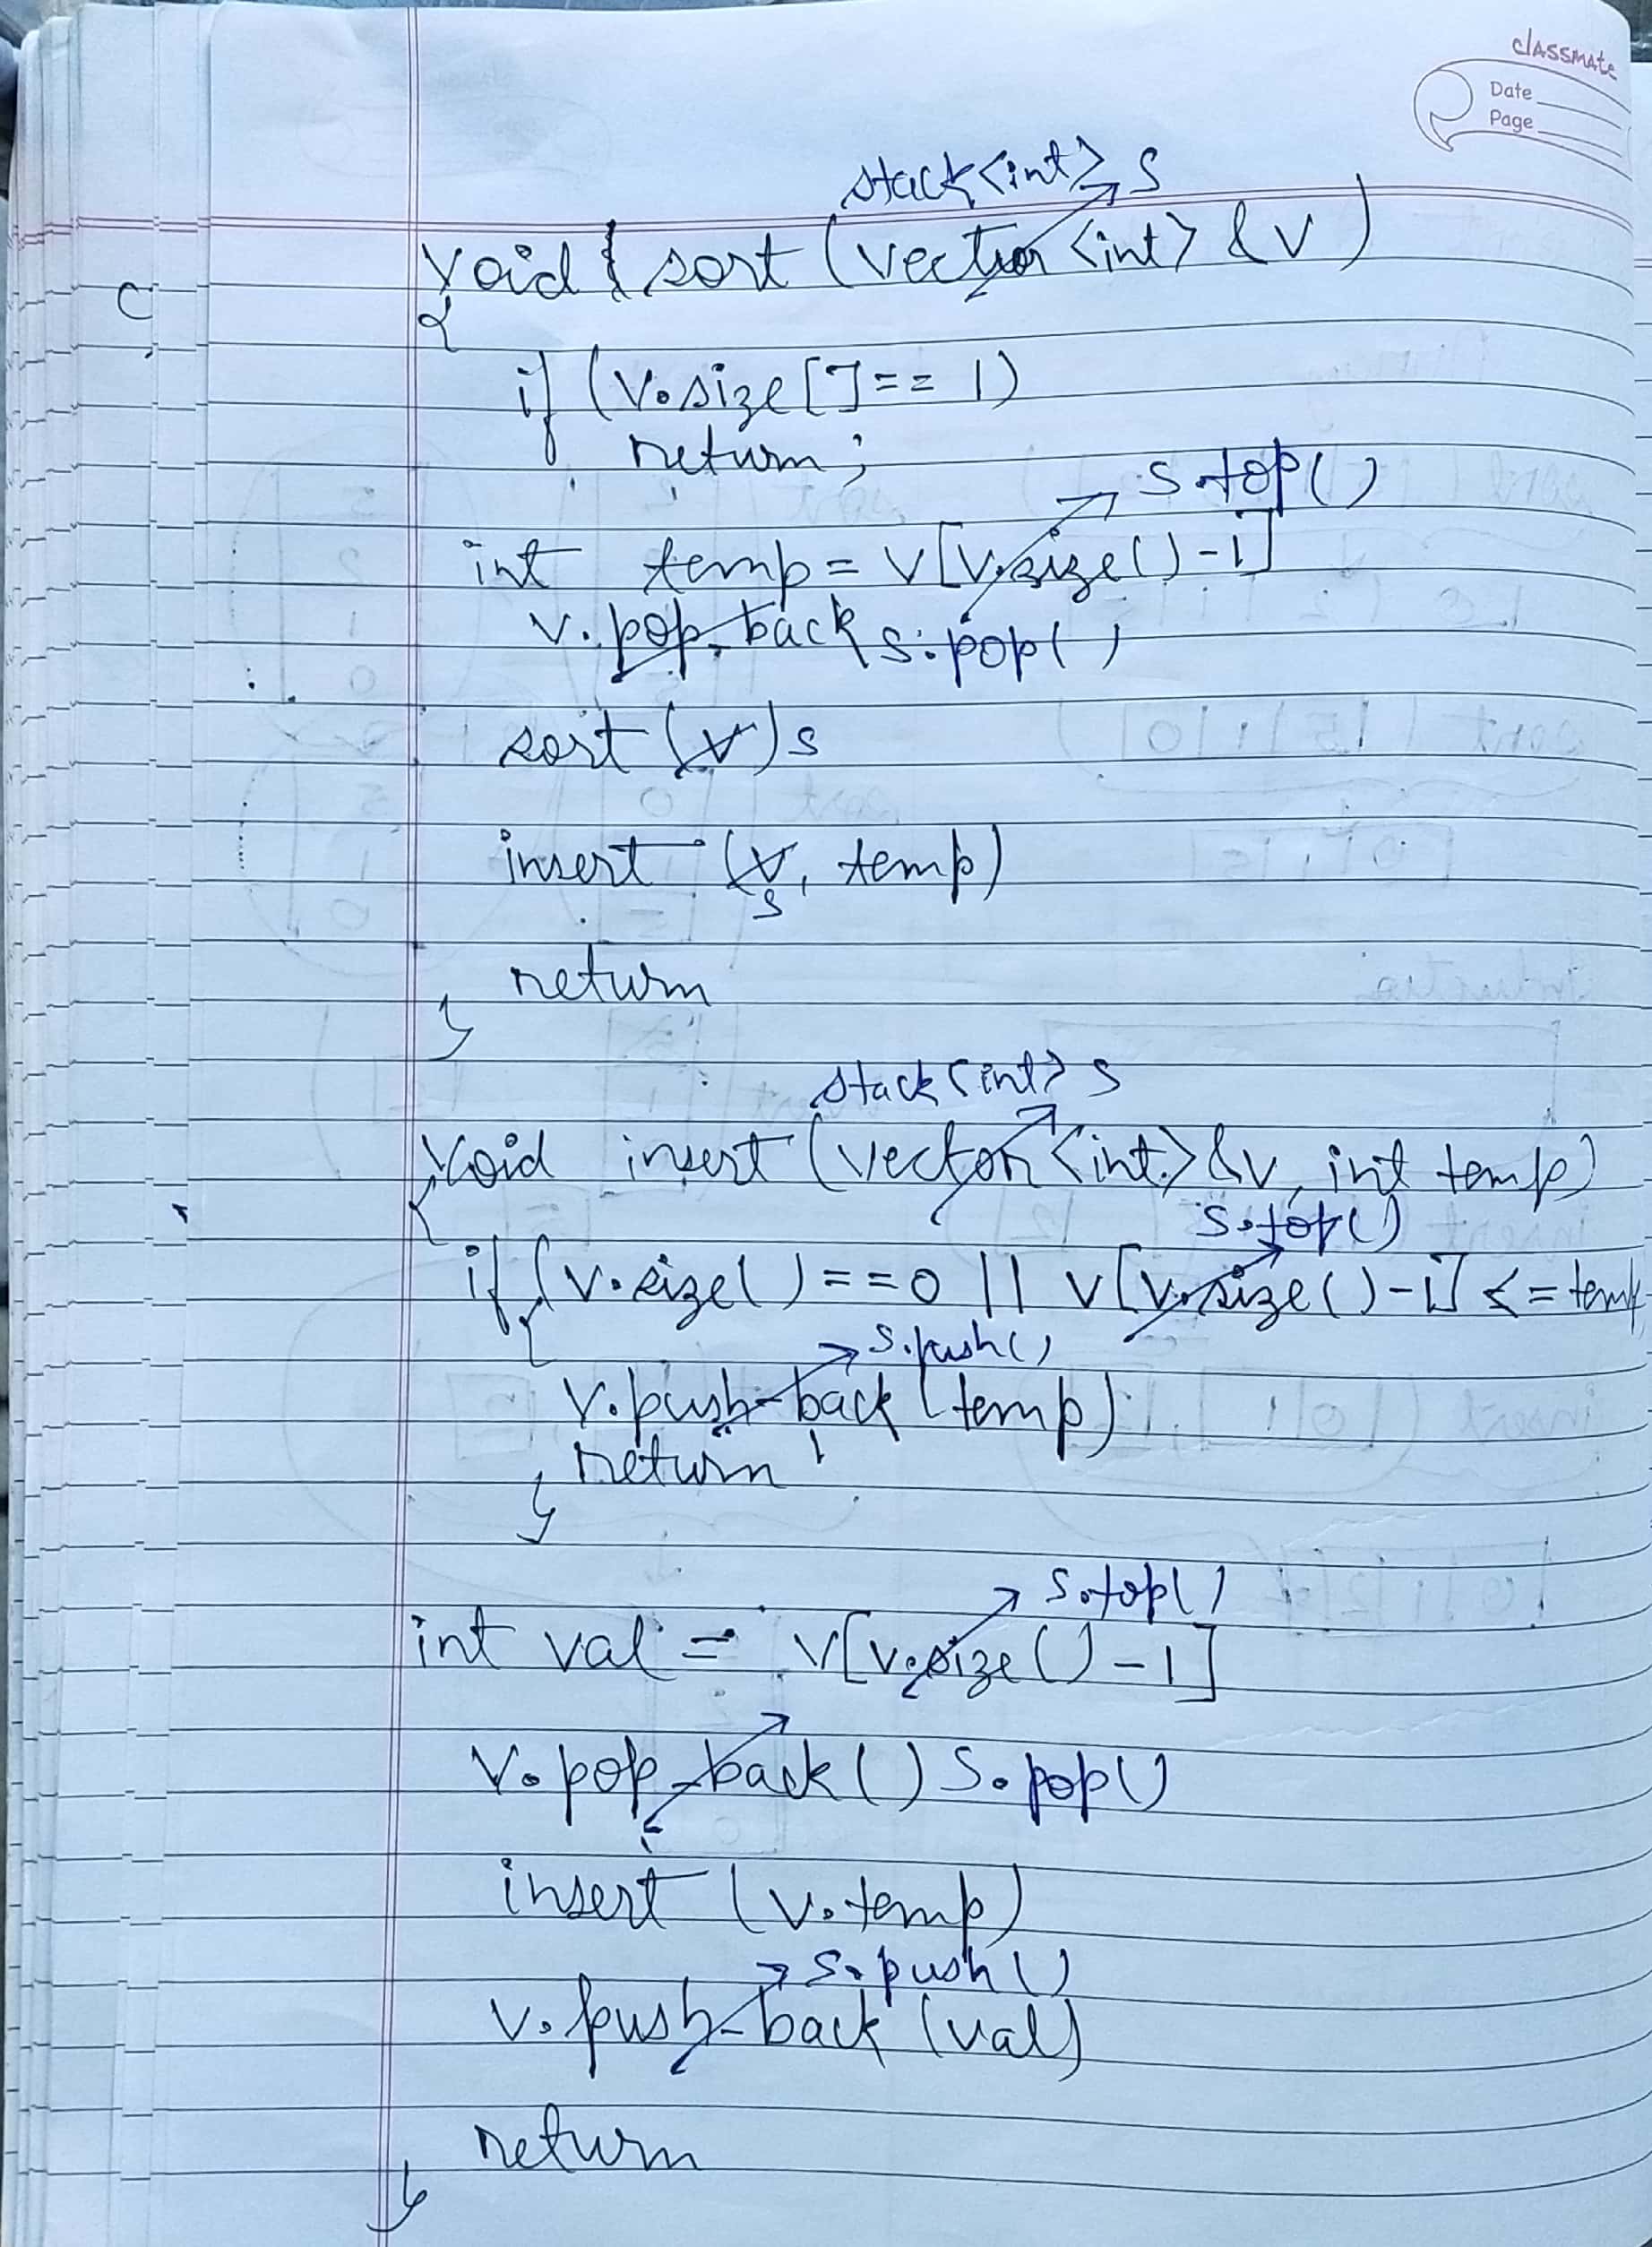 classmate
Date
Page
stack<int> s
void sort (vector <int> &v)
{
if (v.size[]== 1)
return;
s.top()
int temp = v[v.size()-1]
v.pop_back s.pop()
sort (v) s
insert (v, temp)
s
return
}
stack<int> s
void insert (vector <int> &v, int temp)
{
s.top()
if (v.size()==0 || v[v.size()-1] <= temp
{
s.push()
v.push-back (temp)
return
}
s.top()
int val = v[v.size()-1]
v.pop_back() s.pop()
insert (v.temp)
s.push()
v.push-back (val)
return
}